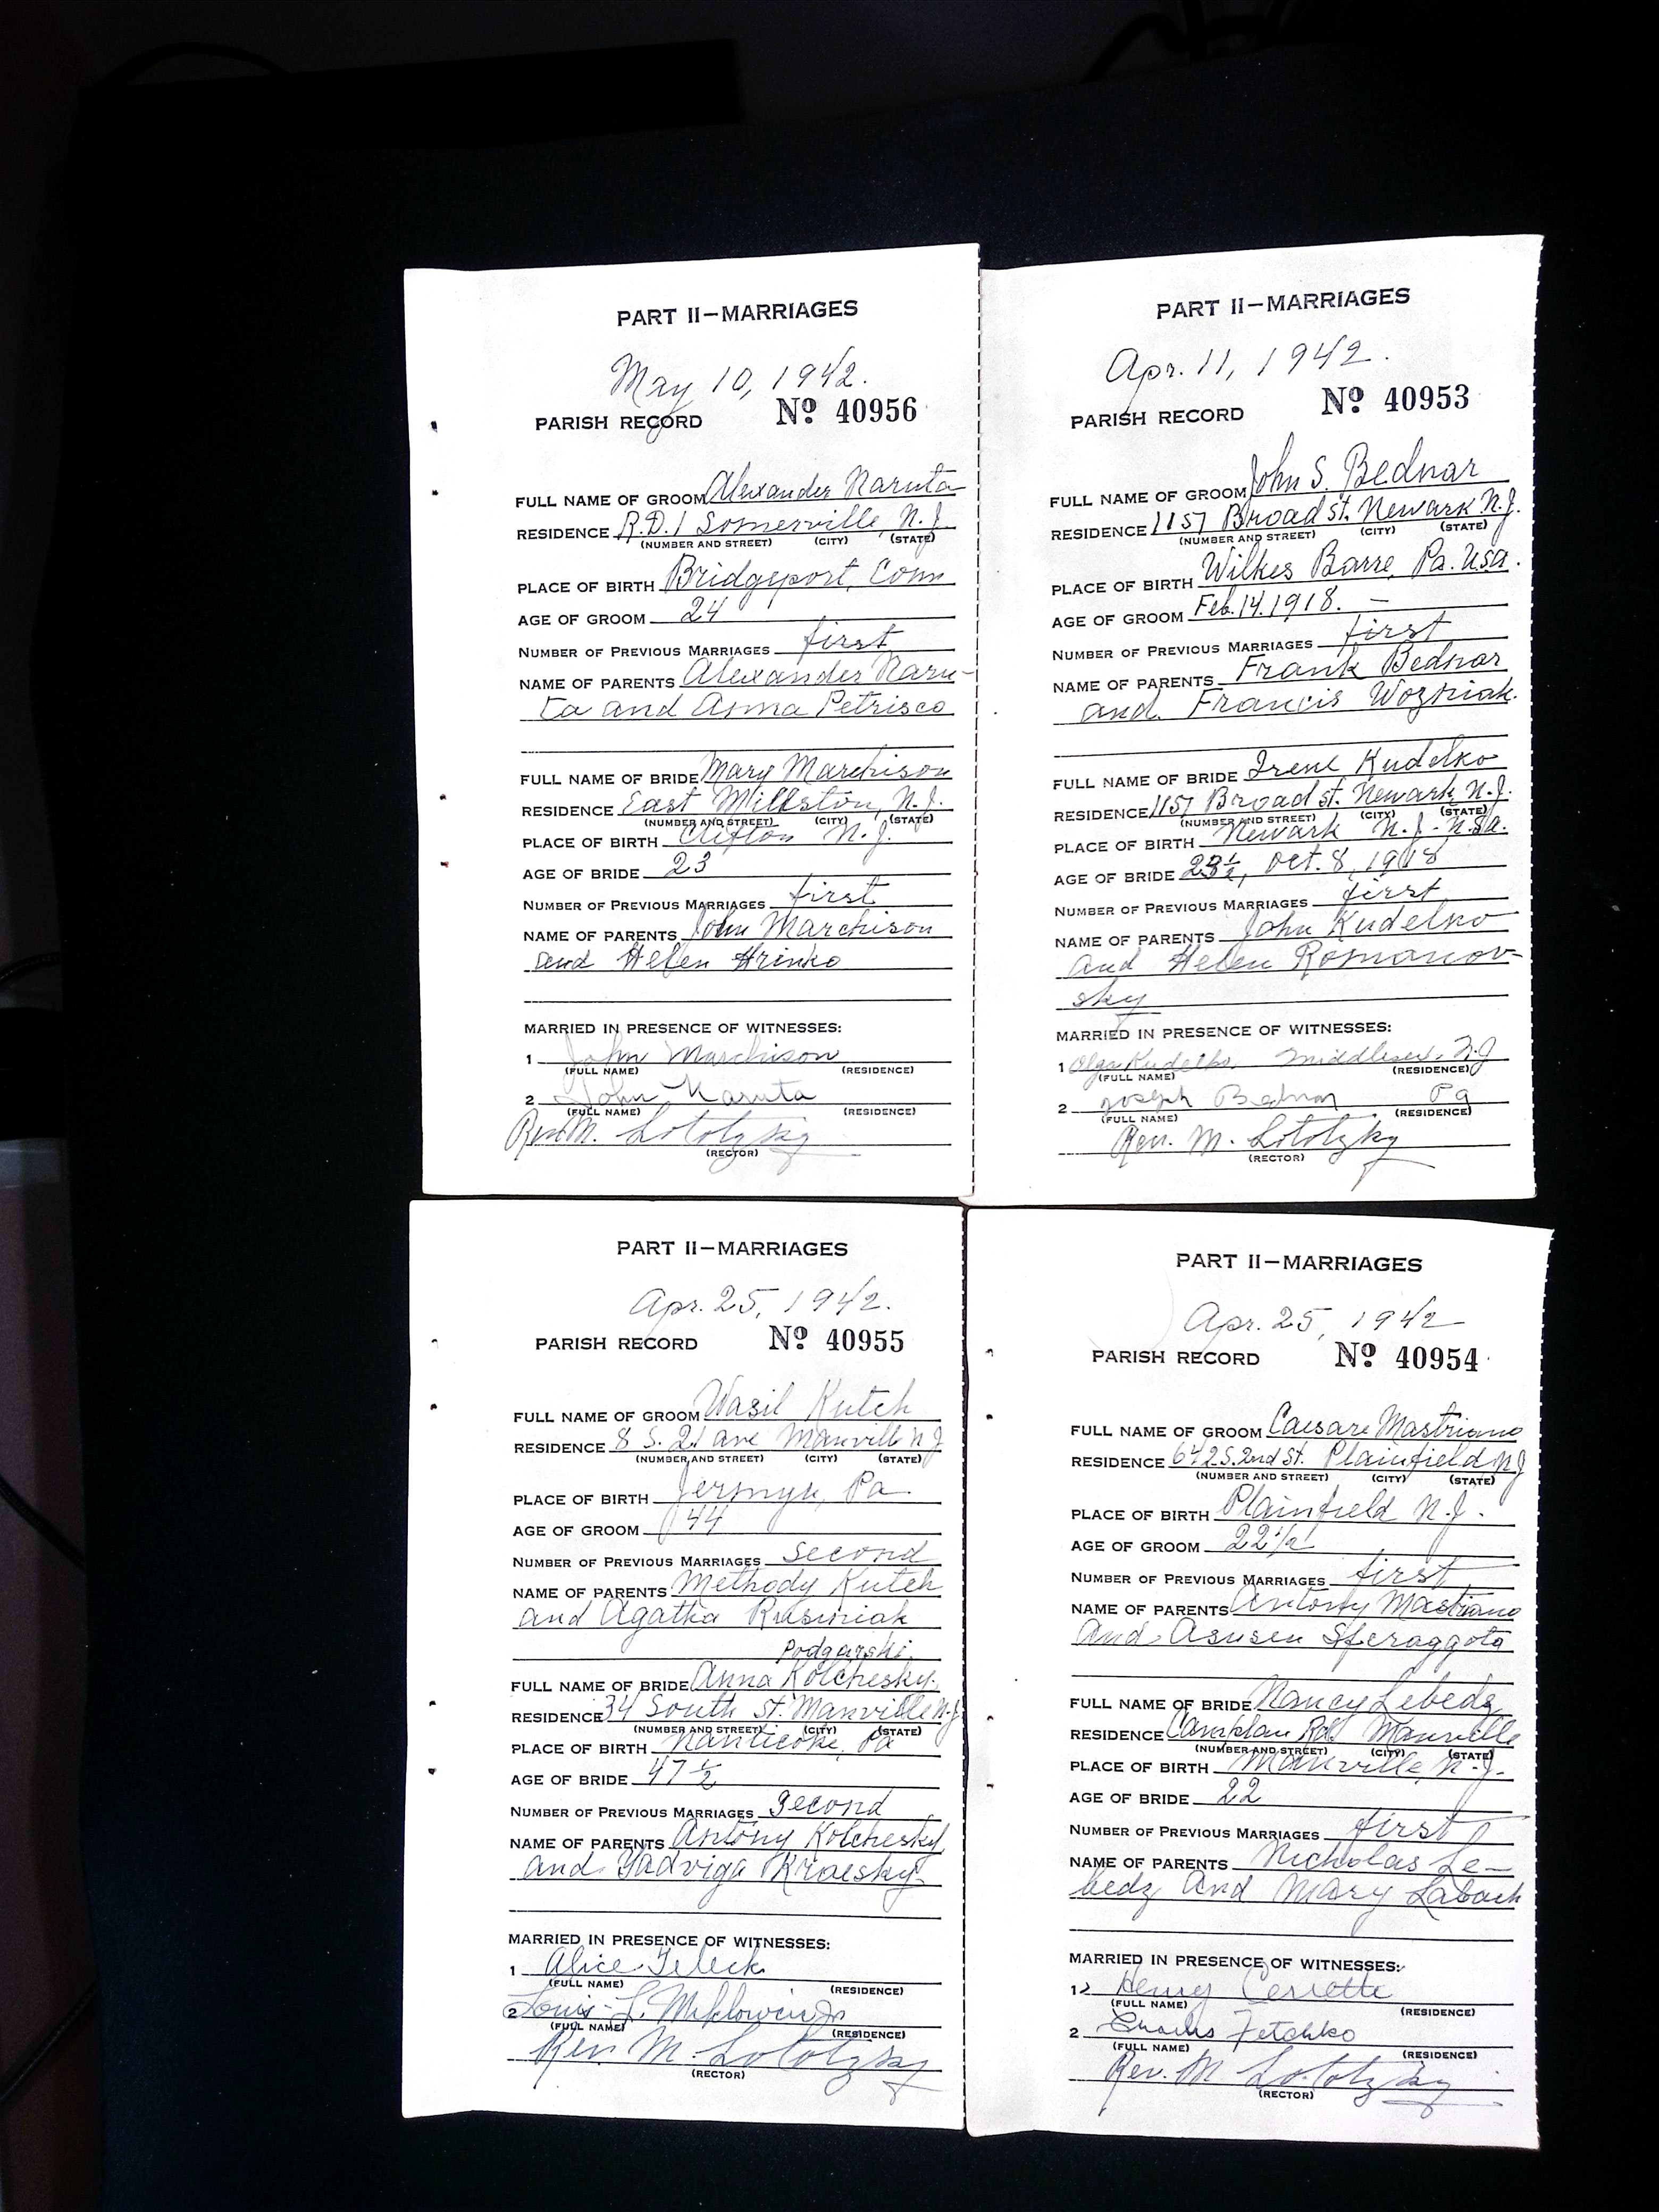 PART II—MARRIAGES
May 10, 1942.
PARISH RECORD Nº 40956
FULL NAME OF GROOM Alexander Naruta
RESIDENCE R.D.1 Somerville, N.J.
(NUMBER AND STREET) (CITY) (STATE)
PLACE OF BIRTH Bridgeport, Conn
AGE OF GROOM 24
NUMBER OF PREVIOUS MARRIAGES first
NAME OF PARENTS Alexander Naru-
ta and Anna Petrisco
FULL NAME OF BRIDE Mary Marchison
RESIDENCE East Millston, N.J.
(NUMBER AND STREET) (CITY) (STATE)
PLACE OF BIRTH Clifton N.J.
AGE OF BRIDE 23
NUMBER OF PREVIOUS MARRIAGES first
NAME OF PARENTS John Marchison
and Helen Hrinko
MARRIED IN PRESENCE OF WITNESSES:
1 John Marchison
(FULL NAME) (RESIDENCE)
2 John Naruta
(FULL NAME) (RESIDENCE)
Rev. M. Lototzky
(RECTOR)
PART II—MARRIAGES
Apr. 11, 1942.
PARISH RECORD Nº 40953
FULL NAME OF GROOM John S. Bednar
RESIDENCE 1157 Broad st. Newark N.J.
(NUMBER AND STREET) (CITY) (STATE)
PLACE OF BIRTH Wilkes Barre, Pa. USA.
AGE OF GROOM Feb. 14. 1918. —
NUMBER OF PREVIOUS MARRIAGES first
NAME OF PARENTS Frank Bednar
and Francis Wozniak.
FULL NAME OF BRIDE Irene Kudelko
RESIDENCE 1157 Broad st. Newark N.J.
(NUMBER AND STREET) (CITY) (STATE)
PLACE OF BIRTH Newark N.J.
AGE OF BRIDE 23½, Oct. 8, 1918
NUMBER OF PREVIOUS MARRIAGES first
NAME OF PARENTS John Kudelko
and Helen Romanov-
sky
MARRIED IN PRESENCE OF WITNESSES:
1 Olga Kudelko, Middlesex, N.J
(FULL NAME) (RESIDENCE)
2 Joseph Bednar Pa
(FULL NAME) (RESIDENCE)
Rev. M. Lototzky
(RECTOR)
PART II—MARRIAGES
Apr. 25, 1942.
PARISH RECORD Nº 40955
FULL NAME OF GROOM Wasil Kutch
RESIDENCE 8 S. 21 ave Manville NJ
(NUMBER AND STREET) (CITY) (STATE)
PLACE OF BIRTH Jermyn, Pa.
AGE OF GROOM 44
NUMBER OF PREVIOUS MARRIAGES second
NAME OF PARENTS Methody Kutch
and Agatha Rusiniak
Podgarski
FULL NAME OF BRIDE Anna Kolchesky.
RESIDENCE 34 South st. Manville N.J.
(NUMBER AND STREET) (CITY) (STATE)
PLACE OF BIRTH Nanticoke, Pa
AGE OF BRIDE 47½
NUMBER OF PREVIOUS MARRIAGES second
NAME OF PARENTS Antony Kolchesky
and Yadviga
MARRIED IN PRESENCE OF WITNESSES:
1 Alice
(FULL NAME) (RESIDENCE)
2 Louis L.
(FULL NAME) (RESIDENCE)
Rev. M. Lototzky
(RECTOR)
PART II—MARRIAGES
Apr. 25, 1942
PARISH RECORD Nº 40954
FULL NAME OF GROOM Caesare Mastriano
RESIDENCE 642 S. 2nd St. Plainfield NJ
(NUMBER AND STREET) (CITY) (STATE)
PLACE OF BIRTH Plainfield N.J.
AGE OF GROOM 22½
NUMBER OF PREVIOUS MARRIAGES first
NAME OF PARENTS Antony Mastriano
and Asusen Sferaggota
FULL NAME OF BRIDE Nancy Lebedz
RESIDENCE Camplan Rd. Manville
(NUMBER AND STREET) (CITY) (STATE)
PLACE OF BIRTH Manville, N.J.
AGE OF BRIDE 22
NUMBER OF PREVIOUS MARRIAGES first
NAME OF PARENTS Nicholas Le-
bedz and Mary Labach
MARRIED IN PRESENCE OF WITNESSES:
1 Henry Cerrette
(FULL NAME) (RESIDENCE)
2 Charles Fetchko
(FULL NAME) (RESIDENCE)
Rev. M. Lototzky
(RECTOR)